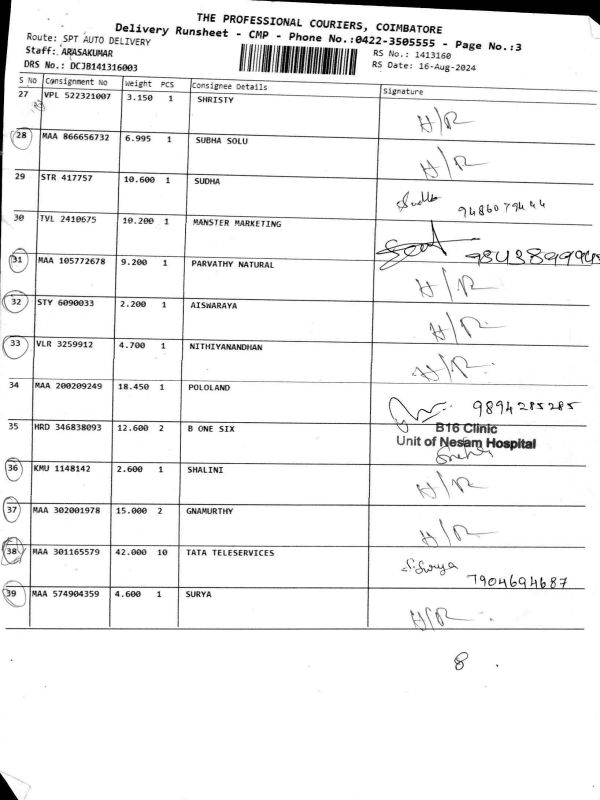 THE PROFESSIONAL COURIERS, COIMBATORE
Delivery Runsheet - CMP - Phone No.:0422-3505555 - Page No.:3
Route: SPT AUTO DELIVERY
RS No.: 1413160
Staff: ARASAKUMAR
RS Date: 16-Aug-2024
DRS No.: DCJB141316003
S No Consignment No Weight PCS Consignee Details Signature
27 VPL 522321007 3.150 1 SHRISTY H/R
28 MAA 866656732 6.995 1 SUBHA SOLU H/R
29 STR 417757 10.600 1 SUDHA Sudha 9486079444
30 TVL 2410675 10.200 1 MANSTER MARKETING
31 MAA 105772678 9.200 1 PARVATHY NATURAL H/R
32 STY 6090033 2.200 1 AISWARAYA H/R
33 VLR 3259912 4.700 1 NITHIYANANDHAN H/R
34 MAA 200209249 18.450 1 POLOLAND 9894285285
35 HRD 346838093 12.600 2 B ONE SIX B16 Clinic
Unit of Nesam Hospital
36 KMU 1148142 2.600 1 SHALINI H/R
37 MAA 302001978 15.000 2 GNAMURTHY H/R
38 MAA 301165579 42.000 10 TATA TELESERVICES S.Surya
7904694687
39 MAA 574904359 4.600 1 SURYA H/R
8